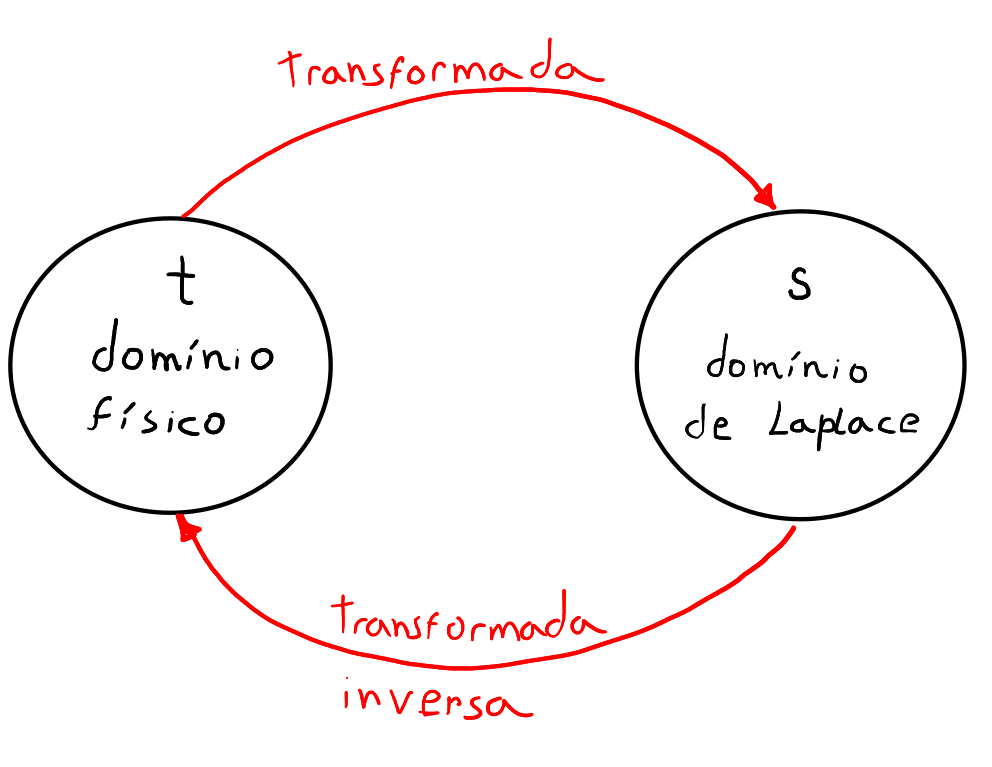 transformada
t
domínio
físico
s
domínio
de Laplace
transformada
inversa